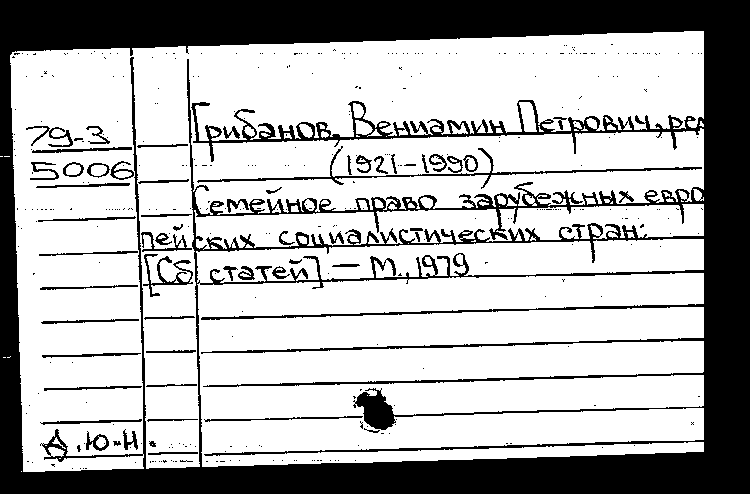 79-3
5006
Грибанов, Вениамин Петрович, ред
(1921-1990)
Семейное право зарубежных евро
пейских социалистических стран:
[Сб статей] — М., 1979
А.Ю.Н.